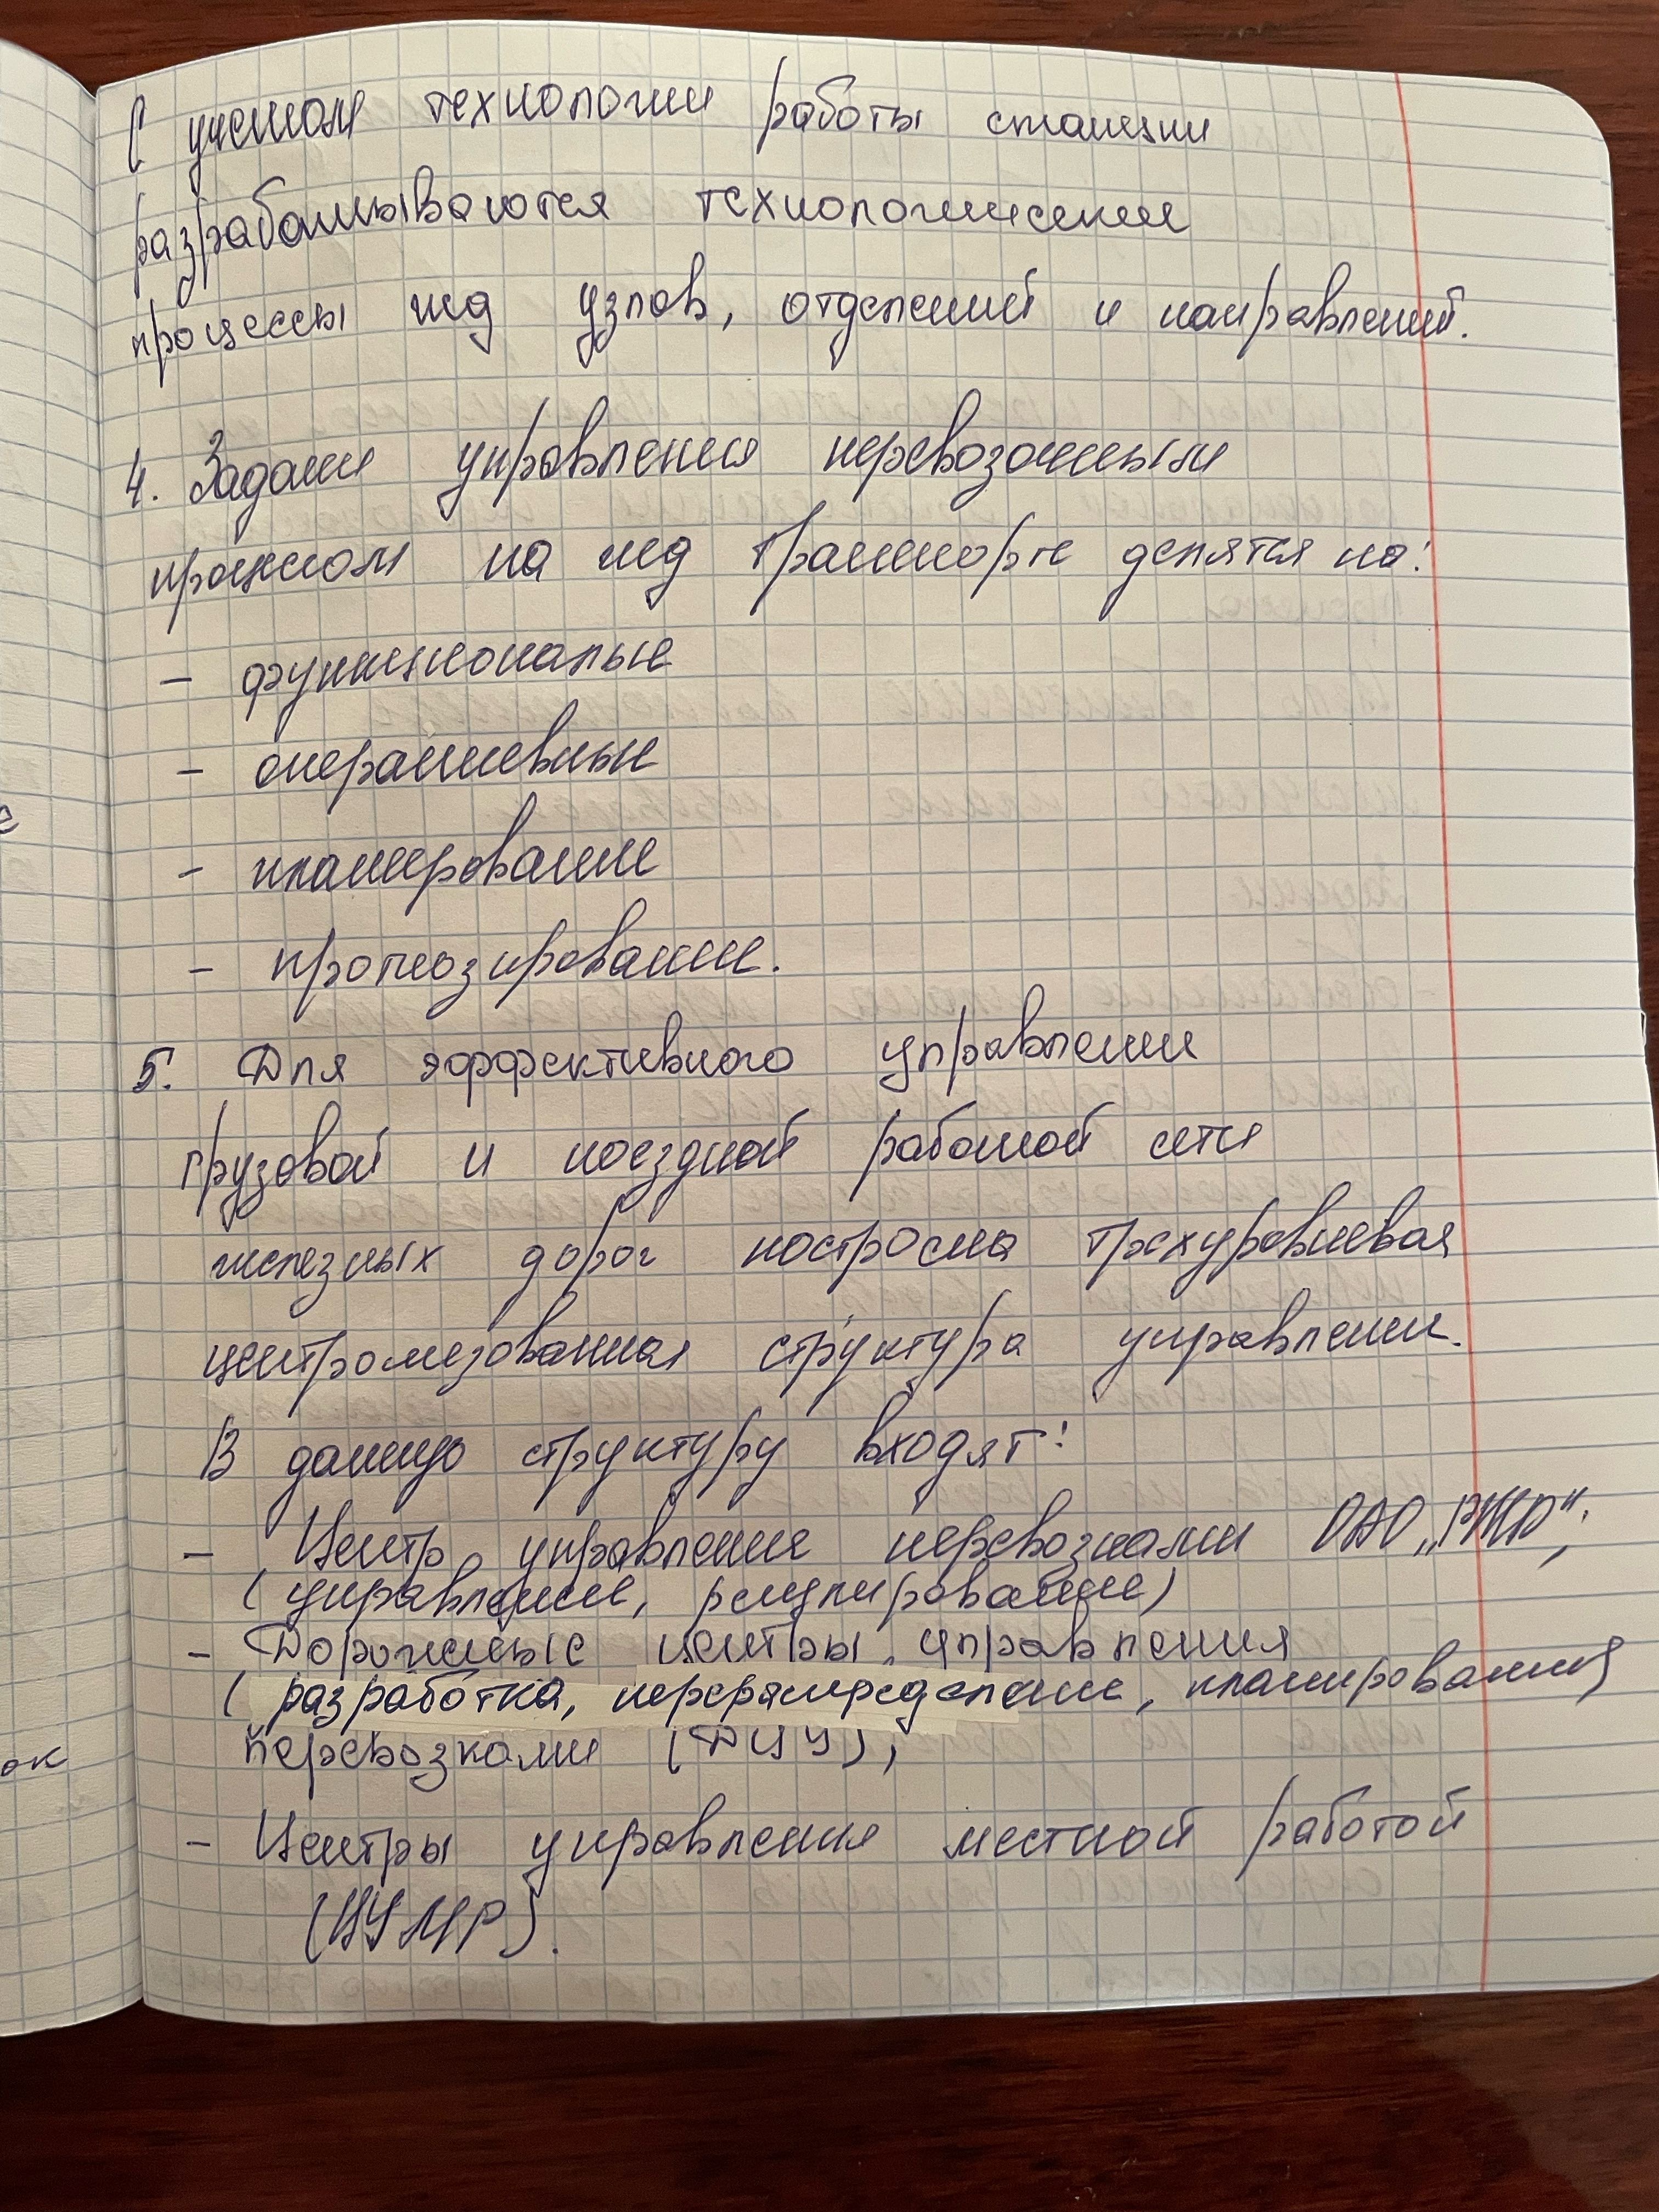 С учетом технологии работы станции
разрабатываются технологические
процессы жд узлов, отделений и направлений.
4. Задачи управления перевозочным
процессом на жд транспорте делятся на:
- функциональные
- оперативные
- планирование
- прогнозирование.
5. Для эффективного управления
грузовой и поездной работой сети
железных дорог построена трехуровневая
централизованная структура управления.
В данную структуру входят:
- Центр управления перевозками ОАО „РЖД“;
(управление, регулирование)
- Дорожные центры управления
(разработка, перераспределение, планирования)
перевозками (ДЦУ);
- Центры управления местной работой
(ЦУМР).
ок